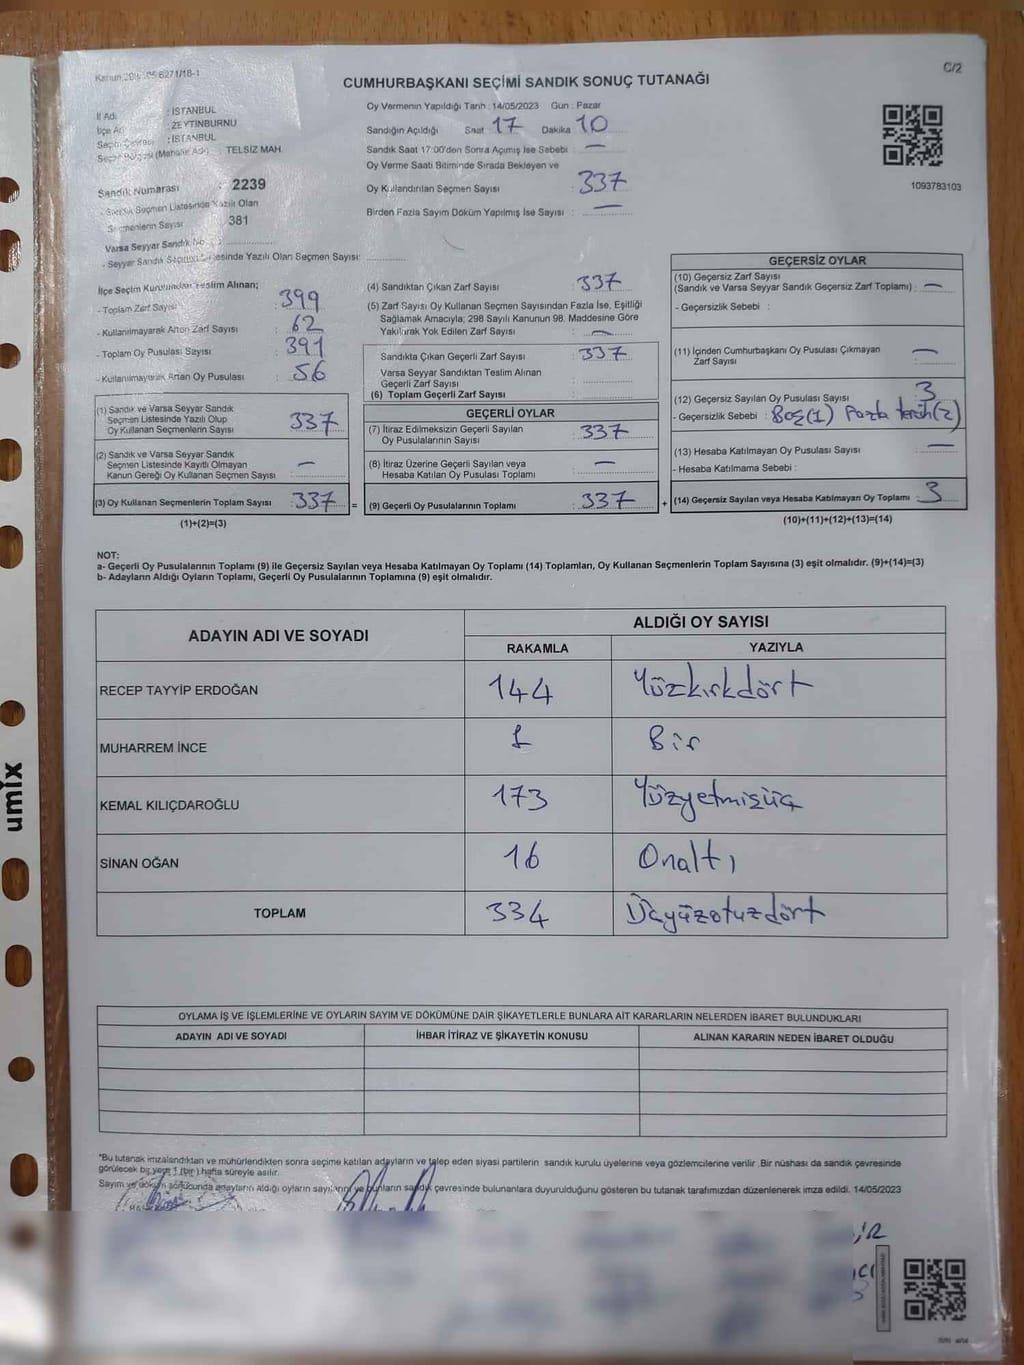 C/2
CUMHURBAŞKANI SEÇİMİ SANDIK SONUÇ TUTANAĞI
İl Adı : İSTANBUL
: ZEYTİNBURNU
: İSTANBUL
TELSİZ MAH.
Sandık Numarası : 2239
Seçmen Listesinde Yazılı Olan
Seçmenlerin Sayısı 381
Varsa Seyyar Sandık No
- Seyyar Sandık Seçmen Yazılı Olan Seçmen Sayısı:
Oy Vermenin Yapıldığı Tarih : 14/05/2023 Gün : Pazar
Sandığın Açıldığı Saat 17 Dakika 10
Sandık Saat 17:00'den Sonra Açımış İse Sebebi : —
Oy Verme Saati Bitiminde Sırada Bekleyen ve
Oy Kullandırılan Seçmen Sayısı : 337
Birden Fazla Sayım Döküm Yapılmış İse Sayısı : —
1093783103
İlçe Seçim Kurulundan Teslim Alınan;
- Toplam Zarf Sayısı : 399
- Kullanılmayarak Artan Zarf Sayısı : 62
- Toplam Oy Pusulası Sayısı : 391
- Kullanılmayarak Artan Oy Pusulası : 56
(1) Sandık ve Varsa Seyyar Sandık
Seçmen Listesinde Yazılı Olup
Oy Kullanan Seçmenlerin Sayısı : 337
(2) Sandık ve Varsa Seyyar Sandık
Seçmen Listesinde Kayıtlı Olmayan
Kanun Gereği Oy Kullanan Seçmen Sayısı : —
(3) Oy Kullanan Seçmenlerin Toplam Sayısı : 337 =
(1)+(2)=(3)
(4) Sandıktan Çıkan Zarf Sayısı : 337
(5) Zarf Sayısı Oy Kullanan Seçmen Sayısından Fazla İse, Eşitliği
Sağlamak Amacıyla; 298 Sayılı Kanunun 98. Maddesine Göre
Yakılarak Yok Edilen Zarf Sayısı : —
Sandıkta Çıkan Geçerli Zarf Sayısı : 337
Varsa Seyyar Sandıktan Teslim Alınan
Geçerli Zarf Sayısı :
(6) Toplam Geçerli Zarf Sayısı :
GEÇERLİ OYLAR
(7) İtiraz Edilmeksizin Geçerli Sayılan
Oy Pusulalarının Sayısı : 337
(8) İtiraz Üzerine Geçerli Sayılan veya
Hesaba Katılan Oy Pusulası Toplamı : —
(9) Geçerli Oy Pusulalarının Toplamı : 337 +
GEÇERSİZ OYLAR
(10) Geçersiz Zarf Sayısı
(Sandık ve Varsa Seyyar Sandık Geçersiz Zarf Toplamı) : —
- Geçersizlik Sebebi :
(11) İçinden Cumhurbaşkanı Oy Pusulası Çıkmayan
Zarf Sayısı : —
(12) Geçersiz Sayılan Oy Pusulası Sayısı : 3
- Geçersizlik Sebebi : Boş(1) Fazla tercih(2)
(13) Hesaba Katılmayan Oy Pusulası Sayısı : —
- Hesaba Katılmama Sebebi :
(14) Geçersiz Sayılan veya Hesaba Katılmayan Oy Toplamı : 3
(10)+(11)+(12)+(13)=(14)
NOT:
a- Geçerli Oy Pusulalarının Toplamı (9) ile Geçersiz Sayılan veya Hesaba Katılmayan Oy Toplamı (14) Toplamları, Oy Kullanan Seçmenlerin Toplam Sayısına (3) eşit olmalıdır. (9)+(14)=(3)
b- Adayların Aldığı Oyların Toplamı, Geçerli Oy Pusulalarının Toplamına (9) eşit olmalıdır.
ADAYIN ADI VE SOYADI
ALDIĞI OY SAYISI
RAKAMLA YAZIYLA
RECEP TAYYİP ERDOĞAN 144 Yüzkırkdört
MUHARREM İNCE 1 Bir
KEMAL KILIÇDAROĞLU 173 Yüzyetmişüç
SİNAN OĞAN 16 Onaltı
TOPLAM 334 Üçyüzotuzdört
OYLAMA İŞ VE İŞLEMLERİNE VE OYLARIN SAYIM VE DÖKÜMÜNE DAİR ŞİKAYETLERLE BUNLARA AİT KARARLARIN NELERDEN İBARET BULUNDUKLARI
ADAYIN ADI VE SOYADI İHBAR İTİRAZ VE ŞİKAYETİN KONUSU ALINAN KARARIN NEDEN İBARET OLDUĞU
*Bu tutanak imzalandıktan ve mühürlendikten sonra seçime katılan adayların ve talep eden siyasi partilerin sandık kurulu üyelerine veya gözlemcilerine verilir .Bir nüshası da sandık çevresinde
görülecek bir yere 1 (bir) hafta süreyle asılır.
Sayım ve döküm sonucunda adayların aldığı oyların sayılarını ve bunların sandık çevresinde bulunanlara duyurulduğunu gösteren bu tutanak tarafımızdan düzenlenerek imza edildi. 14/05/2023
umix